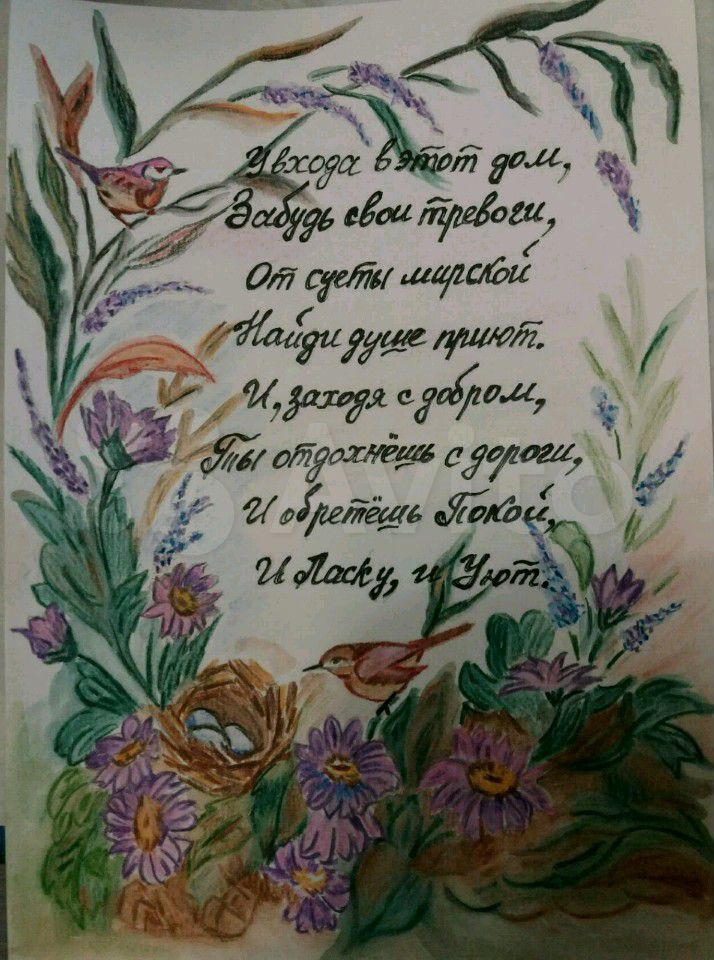 У входа в этот дом,
Забудь свои тревоги,
От суеты мирской
Найди душе приют.
И, заходя с добром,
Ты отдохнёшь с дороги,
И обретёшь Покой,
И Ласку, и Уют.
Avito